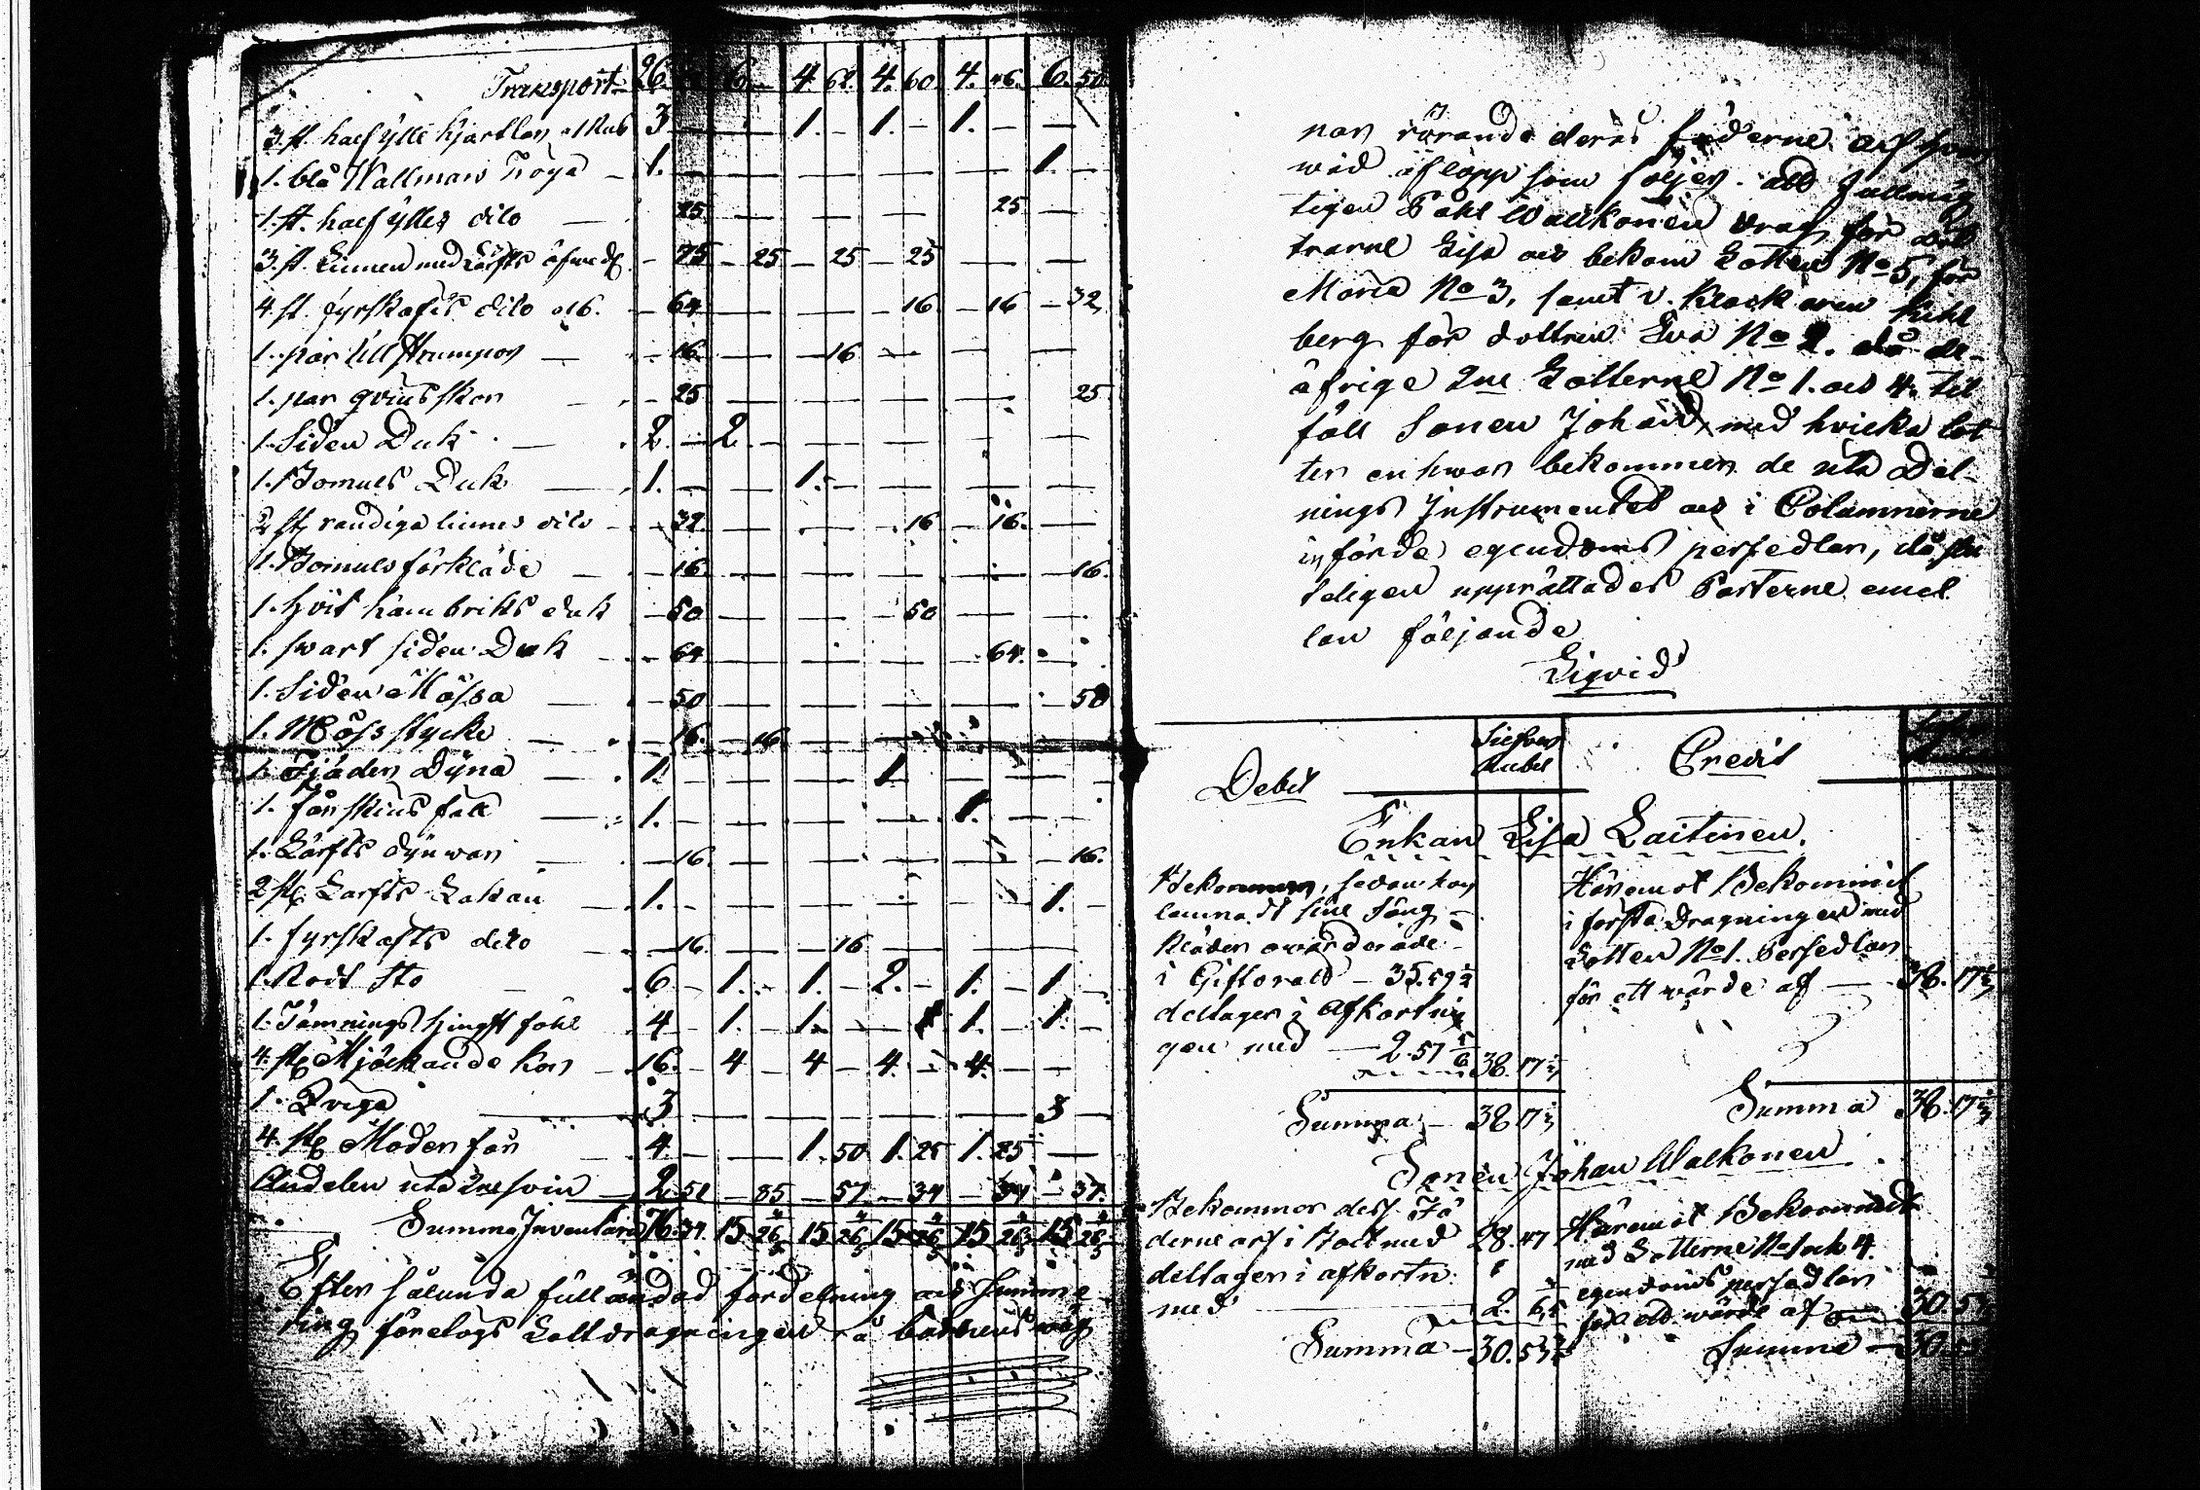 Transport 26. 6. — 4. 62. 4. 60. 4. 46. 6. 50.
3. st. half ylle kjortlar 3 — — — 1. — 1. — 1. — — —
1. blå Wallmars Tröya — 1. — — — — — — — — — 1. —
1. st. half ylles dito — 25 — — — — — — — 25 — —
3. st. Linnen med Lärfts — 75 — 25 — 25 — 25 — — — —
4. st. fyrskafts dito a 16. — 64 — — — — — 16 — 16 — 32
1. par Ull Strumpor — — 16 — — — 16 — — — — — —
1. par qvinsskor — — 25 — — — — — — — — — 25
1. Siden Duk — 2. — 2. — — — — — — — — —
1. Bomuls Duk — 1. — — — 1. — — — — — — —
2 st. randiga linnes dito — — 32. — — — — — 16 — 16. — —
1. Bomuls förkläde — — 16. — — — — — — — — — 16.
1. hvit kambriks duk — 50 — — — — — 50 — — — —
1. svart siden Duk — 64 — — — — — — — 64. — —
1. Siden Mössa — — 50 — — — — — — — — — 50
1. Möss stycke — — 16. — 16 — — — — — — — —
1. Fjäder Dyna — 1. — — — — — 1. — — — — —
1. fårskins fäll — 1. — — — — — — — 1. — — —
1. Lärfts dynwar — — 16. — — — — — — — — — 16.
2 st. Lärfts Lakan — 1. — — — — — — — — — 1. —
1. fyrskafts dito — — 16. — — — 16 — — — — — —
1. Rödt Sto — 6 — 1. — 1. — 2. — 1. — 1. —
1. Tämnings hingst fåhl 4 — 1. — 1. — — — 1. — 1. —
4. st. Mjölkande kor — 16. — 4 — 4 — 4. — 4. — — —
1. Qviga — 3 — — — — — — — — — 3 —
4. st. Moder får — 4 — — — 1. 50 1. 25 1. 25 — —
Andelen uta 2ne svin — 2. 58 — 85 — 57 — 34 — 34 — 37.
Summa Inventarii 76. 15 26 15 26 15 26 15 26 15 26
Efter sålunda fulländad fördelning och Summe
ring företogs Lottdragningen å barnens wäg
nar rörande deras fäderne arf
wid aflopp som följer. att fullmäg
tigen Påhl Wallkonen drog för döt
trarne Lisa och bekom Lotten No 5, för
Maria No 3, samt v. Klockaren Kihl
berg för dottren Eva No 2. då de
öfrige 2ne Lotterne No 1. och 4. til
föll Sonen Johan, med hvilka lot
ter en hwar bekommer de uta Del-
nings Instrumentet och i Columnerne
införde egendoms persedlar, då slu
teligen upprättades Parterne emel
lan följande
Liqvid
Debet
Silfver Rubel
Credit
Enkan Lisa Laitinen.
Bekommer, sedan hon
lemnadt sine Säng
kläder owärderade
i Giftorätt — 35. 59 ½
deltager i Afkortnin
gen med — 2. 57 5/6 38. 17 ⅓
Summa — 38 17 ⅓
Häremot Bekommit
i första Dragningen med
Lotten No 1. Persedlar
för ett wärde af — 38. 17 ⅓
Summa 38. 17 ⅓
Sonen Johan Walkonen
Bekommer dess Fä
derne arf i Behåll med 28. 47
deltager i afkortn:
med — 2. 6
Summa — 30. 53
Häremot Bekommit
med Lotterne No 1 och 4.
egendoms persedlar
för ett wärde af — 30. 53
Summa — 30. 53